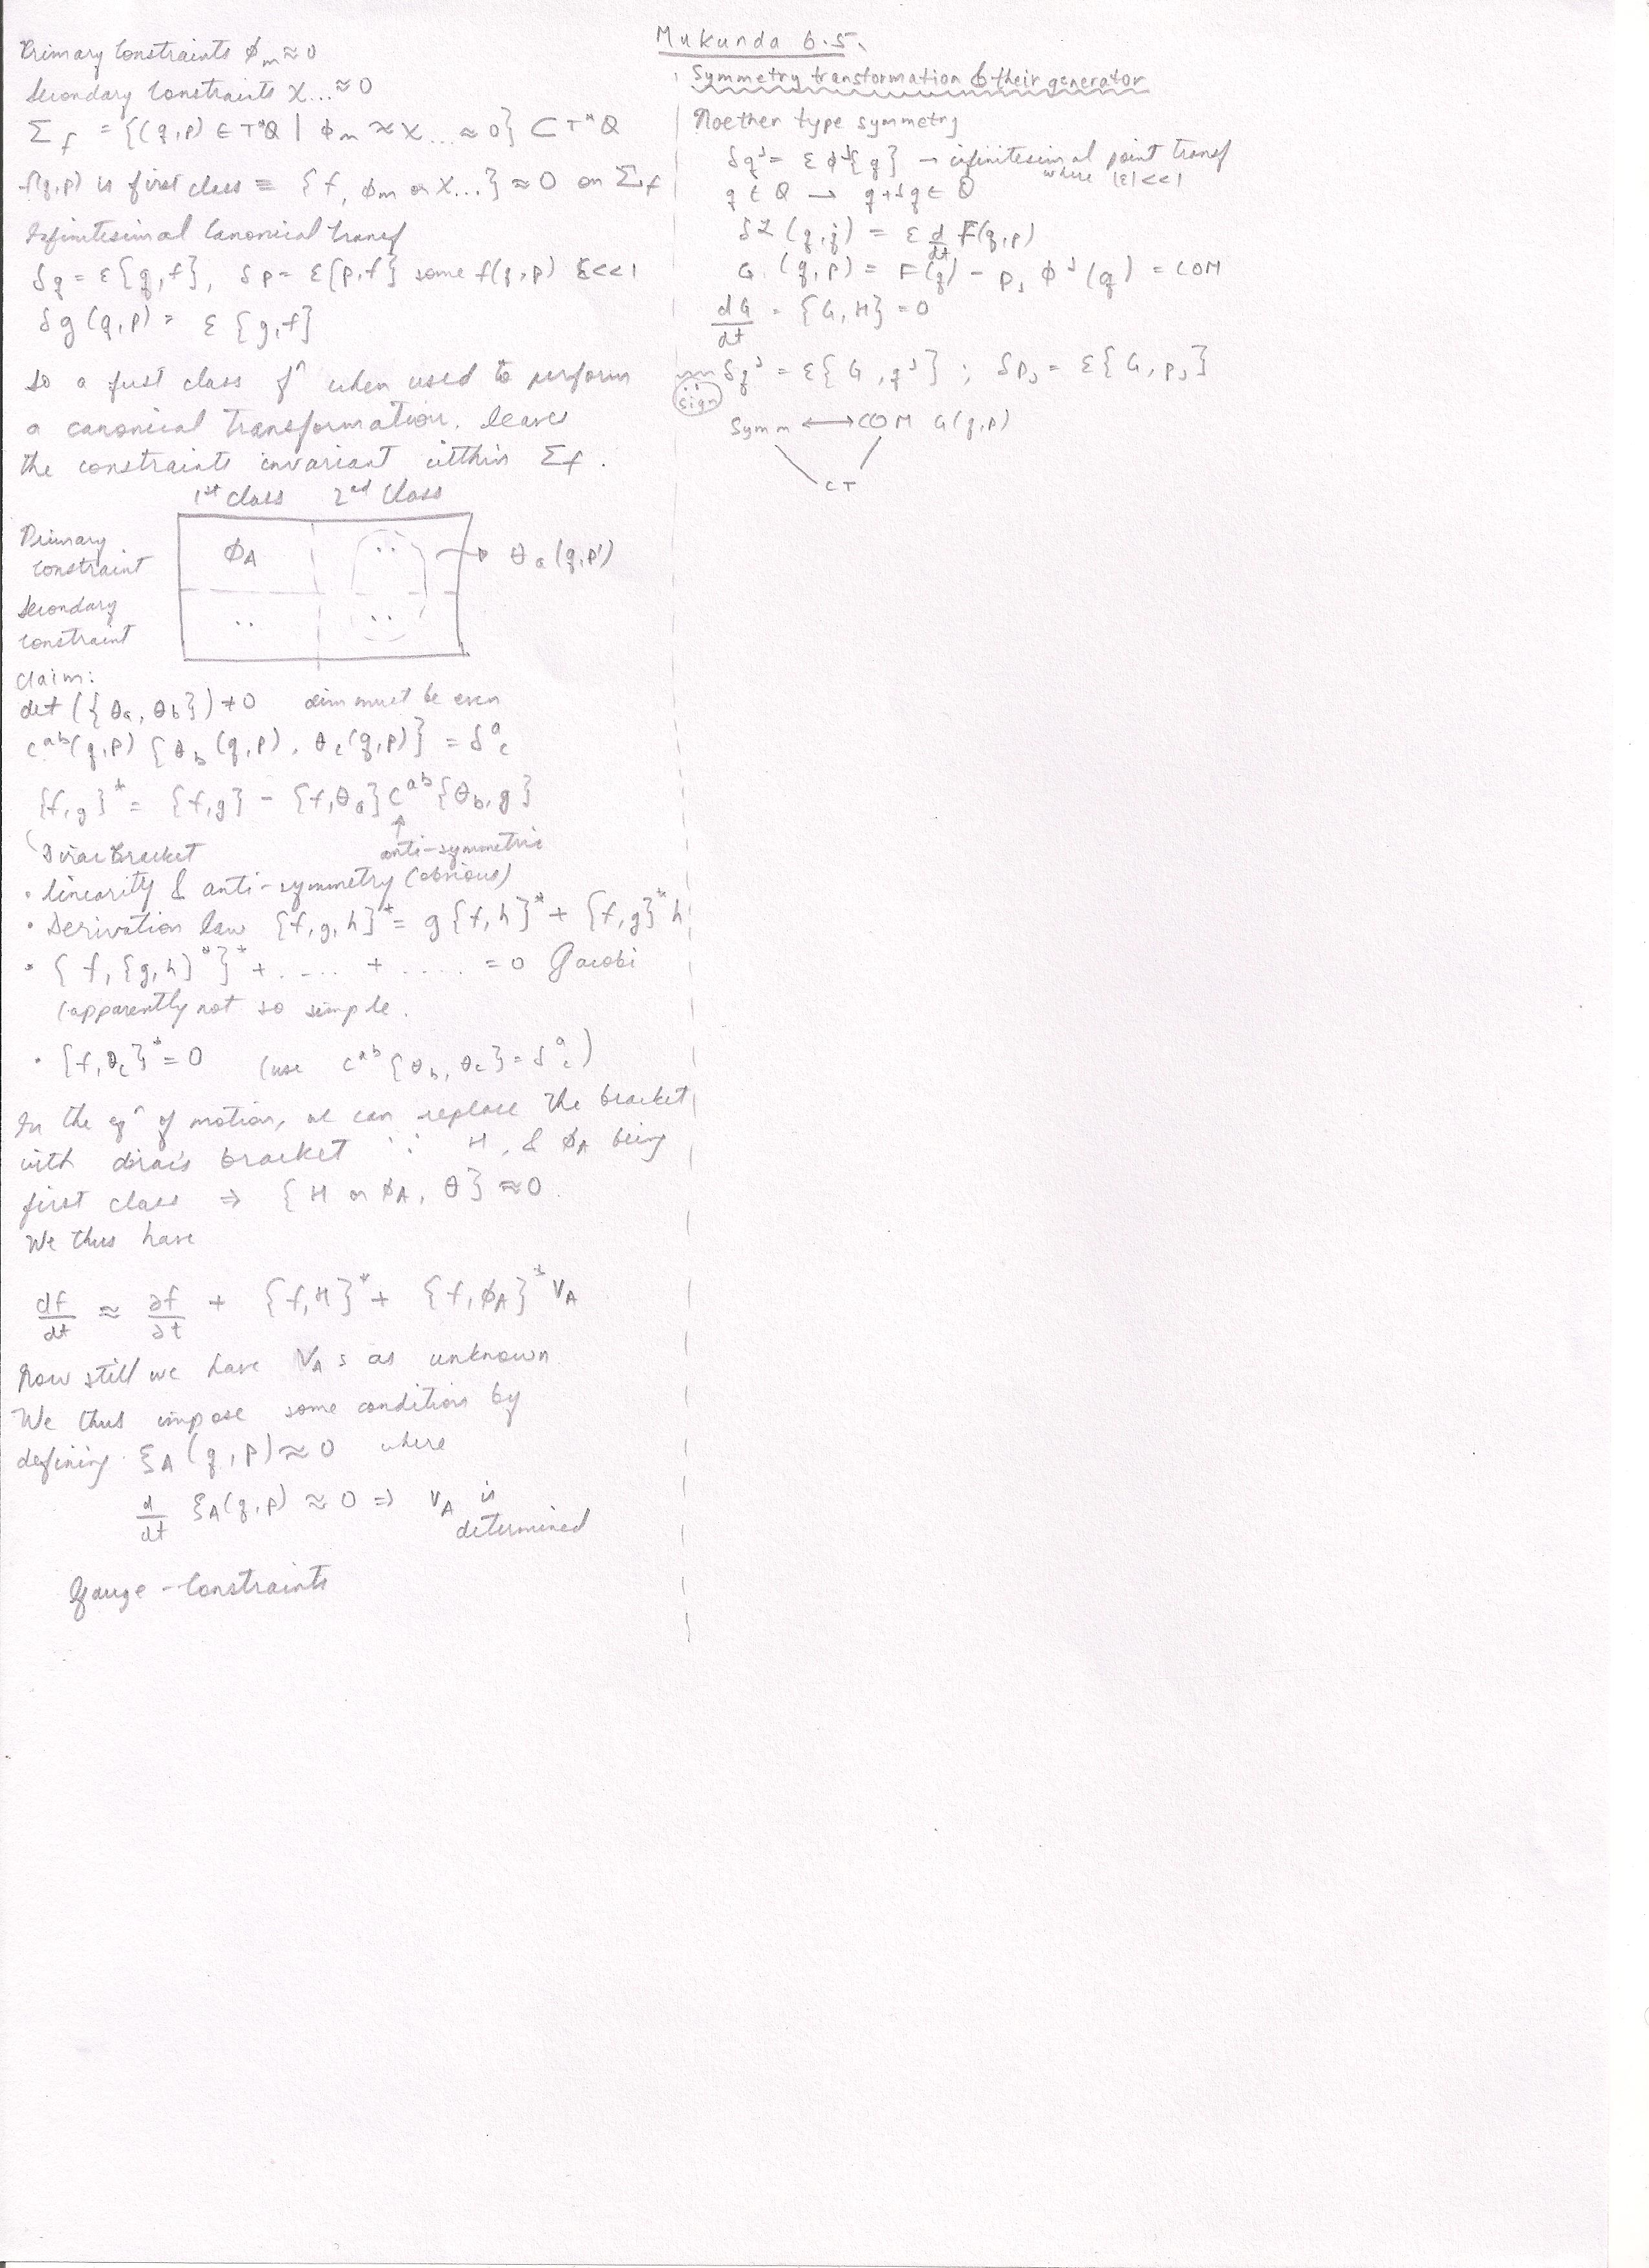 Primary Constraints ϕ_m ≈ 0
Secondary Constraints χ... ≈ 0
Σ_f = {(q,p) ∈ T*Q | ϕ_m ≈ χ... ≈ 0} ⊂ T*Q
f(q,p) is first class ≡ {f, ϕ_m or χ...} ≈ 0 on Σ_f
Infinitesimal Canonical transf
δq = ε{q,f}, δp = ε{p,f} some f(q,p) ε<<1
δg(q,p) = ε{g,f}
So a first class fⁿ when used to perform
a canonical transformation, leaves
the constraints invariant within Σ_f.
1st class 2nd class
Primary constraint ϕ_A .. → θ_a(q,p)
Secondary constraint .. ..
Claim:
det({θ_a, θ_b}) ≠ 0 dim must be even
c^{ab}(q,p) {θ_b(q,p), θ_c(q,p)} = δ^a_c
{f,g}* = {f,g} - {f,θ_a} c^{ab} {θ_b,g}
↑
Dirac Bracket anti-symmetric
• linearity & anti-symmetry (obvious)
• Derivation law {f,g,h}* = g{f,h}* + {f,g}*h
• {f,{g,h}*}* + .... + .... = 0 Jacobi
(apparently not so simple.
• {f,θ_c}* = 0 (use c^{ab}{θ_b,θ_c} = δ^a_c)
In the eqⁿ of motion, we can replace the bracket
with dirac's bracket ∵ H, & ϕ_A being
first class ⇒ {H or ϕ_A, θ} ≈ 0.
We thus have
df/dt ≈ ∂f/∂t + {f,H}* + {f,ϕ_A}* V_A
Now still we have V_A s as unknown
We thus impose some condition by
defining ξ_A(q,p) ≈ 0 where
d/dt ξ_A(q,p) ≈ 0 ⇒ V_A is
determined
Gauge-Constraints
Mukunda 6.5.
Symmetry transformation & their generator
Noether type symmetry
δq^s = ε ϕ^s{q} → infinitesimal point transf
where |ε|<<1
q ∈ Q → q+δq ∈ Q
δL(q,q̇) = ε d/dt F(q,p)
G(q,p) = F(q) - p_s ϕ^s(q) = COM
dG/dt = {G,H} = 0
δq^s = ε{G,q^s} ; δp_s = ε{G,p_s}
sign
Symm ⟷ COM G(q,p)
CT